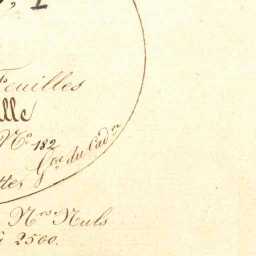 1
Feuilles
lle
No 182
Gon du Cadre
ttes
Nros Nuls
2500.